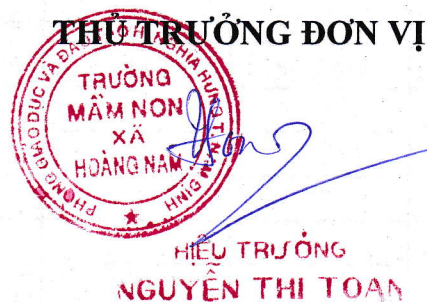 THỦ TRƯỞNG ĐƠN VỊ
PHÒNG GIÁO DỤC VÀ ĐÀO TẠO H. NGHĨA HƯNG T. NAM ĐỊNH
TRƯỜNG
MẦM NON
XÃ
HOÀNG NAM
HIỆU TRƯỞNG
NGUYỄN THỊ TOAN